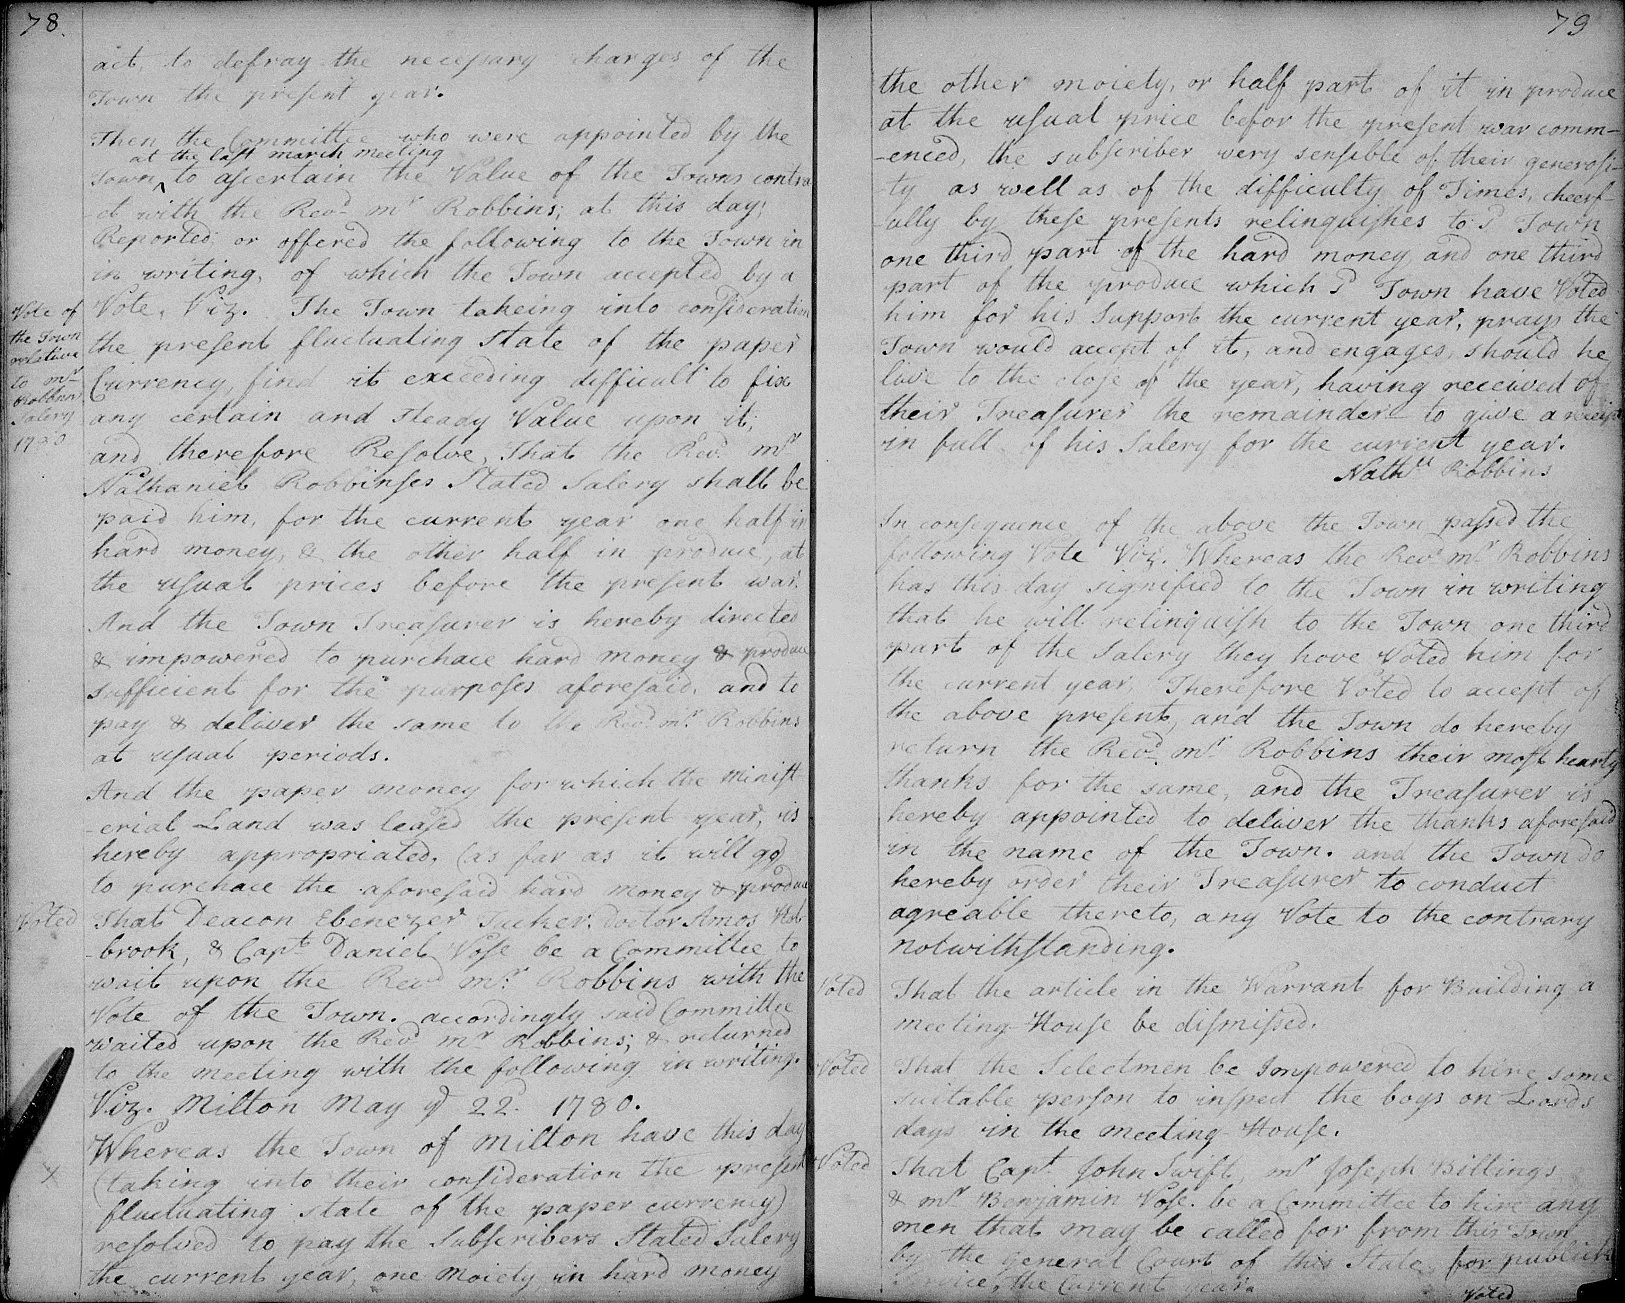 78.
act, to defray the necessary charges of the
Town the present year.
Then the Committee who were appointed by the
at the last march meeting
Town ‸ to ascertain the Value of the Towns contra
-ct with the Revd mr Robbins; at this day;
Reported, or offered the following to the Town in
in writing, of which the Town accepted by a
Vote of
the Town
relative
to mr
Robbins
Salery
1780
Vote, Viz. The Town takeing into consideration
the present fluctuating State of the paper
Currency, find it exceeding difficult to fix
any certain and steady Value upon it;
and therefore Resolve, That the Revd mr
Nathaniel Robbinses Stated Salery shall be
paid him, for the current year one half in
hard money, & the other half in produce, at
the usual prices before the present war.
And the Town Treasurer is hereby directed
& impowered to purchace hard money & produce
sufficient for the purposes aforesaid, and to
pay & deliver the same to the Revd mr Robbins
at usual periods.
And the paper money for which the Minist
-erial Land was leased the present year, is
hereby appropriated, (as far as it will go)
to purchace the aforesaid hard money & produce
Voted That Deacon Ebenezer Tucker, Doctor Amos Hol
-brook, & Capt Daniel Vose be a Committee to
wait upon the Revd mr Robbins with the
Vote of the Town. accordingly said Committee
waited upon the Revd mr Robbins; & returned
to the meeting with the following in writing.
Viz. Milton May ye 22d 1780.
Whereas the Town of Milton have this day
x
(taking into their consideration the present
fluctuating state of the paper currency)
resolved to pay the Subscribers Stated Salery
the current year, one moiety in hard money
79
the other moiety, or half part of it in produce
at the usual price befor the present war comm-
-enced, the subscriber very sensible of their generosi-
-ty as well as of the difficulty of Times, cheerf-
-ully by these presents relinquishes to sd Town
one third part of the hard money and one third
part of the produce which sd Town have Voted
him for his Support the current year, prays the
Town would accept of it, and engages, should he
live to the close of the year, having received of
their Treasurer the remainder to give a receipt
in full of his Salery for the current year.
Nathll Robbins
In consequence of the above the Town passed the
following Vote Viz. Whereas the Revd mr Robbins
has this day signified to the Town in writing
that he will relinquish to the Town one third
part of the Salery they have Voted him for
the current year, Therefore Voted to accept of
the above present, and the Town do hereby
return the Revd mr Robbins their most hearty
thanks for the same, and the Treasurer is
hereby appointed to deliver the thanks aforesaid
in the name of the Town. and the Town do
hereby order their Treasurer to conduct
agreable thereto, any Vote to the contrary
notwithstanding.
Voted That the article in the Warrant for Building a
meeting-House be dismissed.
Voted That the Selectmen be Impowered to hire some
suitable person to inspect the boys on Lords
days in the meeting House.
Voted That Capt John Swift, mr Joseph Billings
& mr Benjamin Vose. be a Committee to hire any
men that may be called for from this Town
by the General Court of this State for publick
service, the current year.
Voted